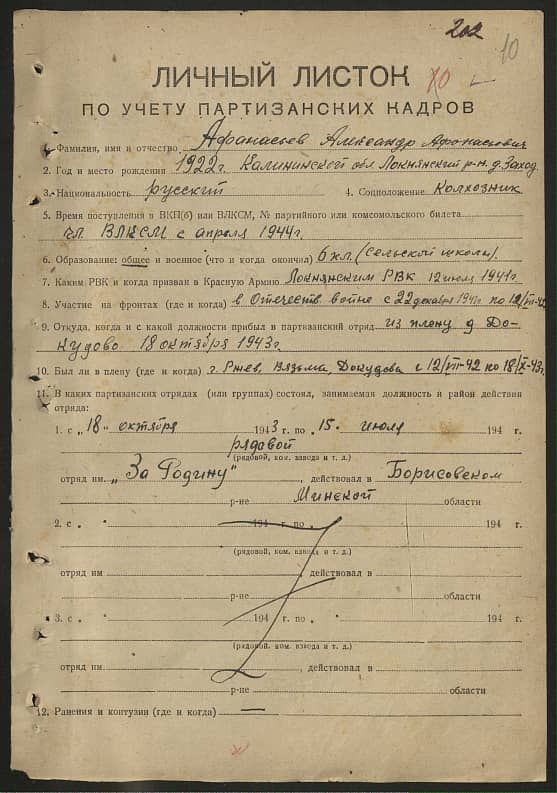 202
10
ЛИЧНЫЙ ЛИСТОК
ПО УЧЕТУ ПАРТИЗАНСКИХ КАДРОВ
1. Фамилия, имя и отчество Афанасьев Александр Афанасьевич
2. Год и место рождения 1922г. Калининской обл Локнянский р-н. д. Заход
3. Национальность русский 4. Соцположение Колхозник
5. Время поступления в ВКП(б) или ВЛКСМ, № партийного или комсомольского билета
чл. ВЛКСМ с апреля 1944г.
6. Образование: общее и военное (что и когда окончил) 6 кл. (сельской школы).
7. Каким РВК и когда призван в Красную Армию Локнянским РВК 12 июля 1941г.
8. Участие на фронтах (где и когда) в Отечеств войне с 22 декабря 1941г по 12/VIII-42
9. Откуда, когда и с какой должности прибыл в партизанский отряд из плену д До-
кудово 18 октября 1943г.
10. Был ли в плену (где и когда) г. Ржев, Вязьма, Докудова с 12/VIII-42 по 18/X-43г.
11. В каких партизанских отрядах (или группах) состоял, занимаемая должность и район действия
отряда:
1. с „18" октября 1943 г. по „15" июля 194 г.
рядовой
(рядовой, ком. взвода и т. д.)
отряд им „За Родину" действовал в Борисовском
р-не Минской области
2. с „ " 194 г. по „ " 194 г.
(рядовой, ком. взвода и т. д.)
отряд им , действовал в
р-не области
3. с „ " 194 г. по „ " 194 г.
(рядовой, ком. взвода и т. д.)
отряд им , действовал в
р-не области
12. Ранения и контузии (где и когда) —